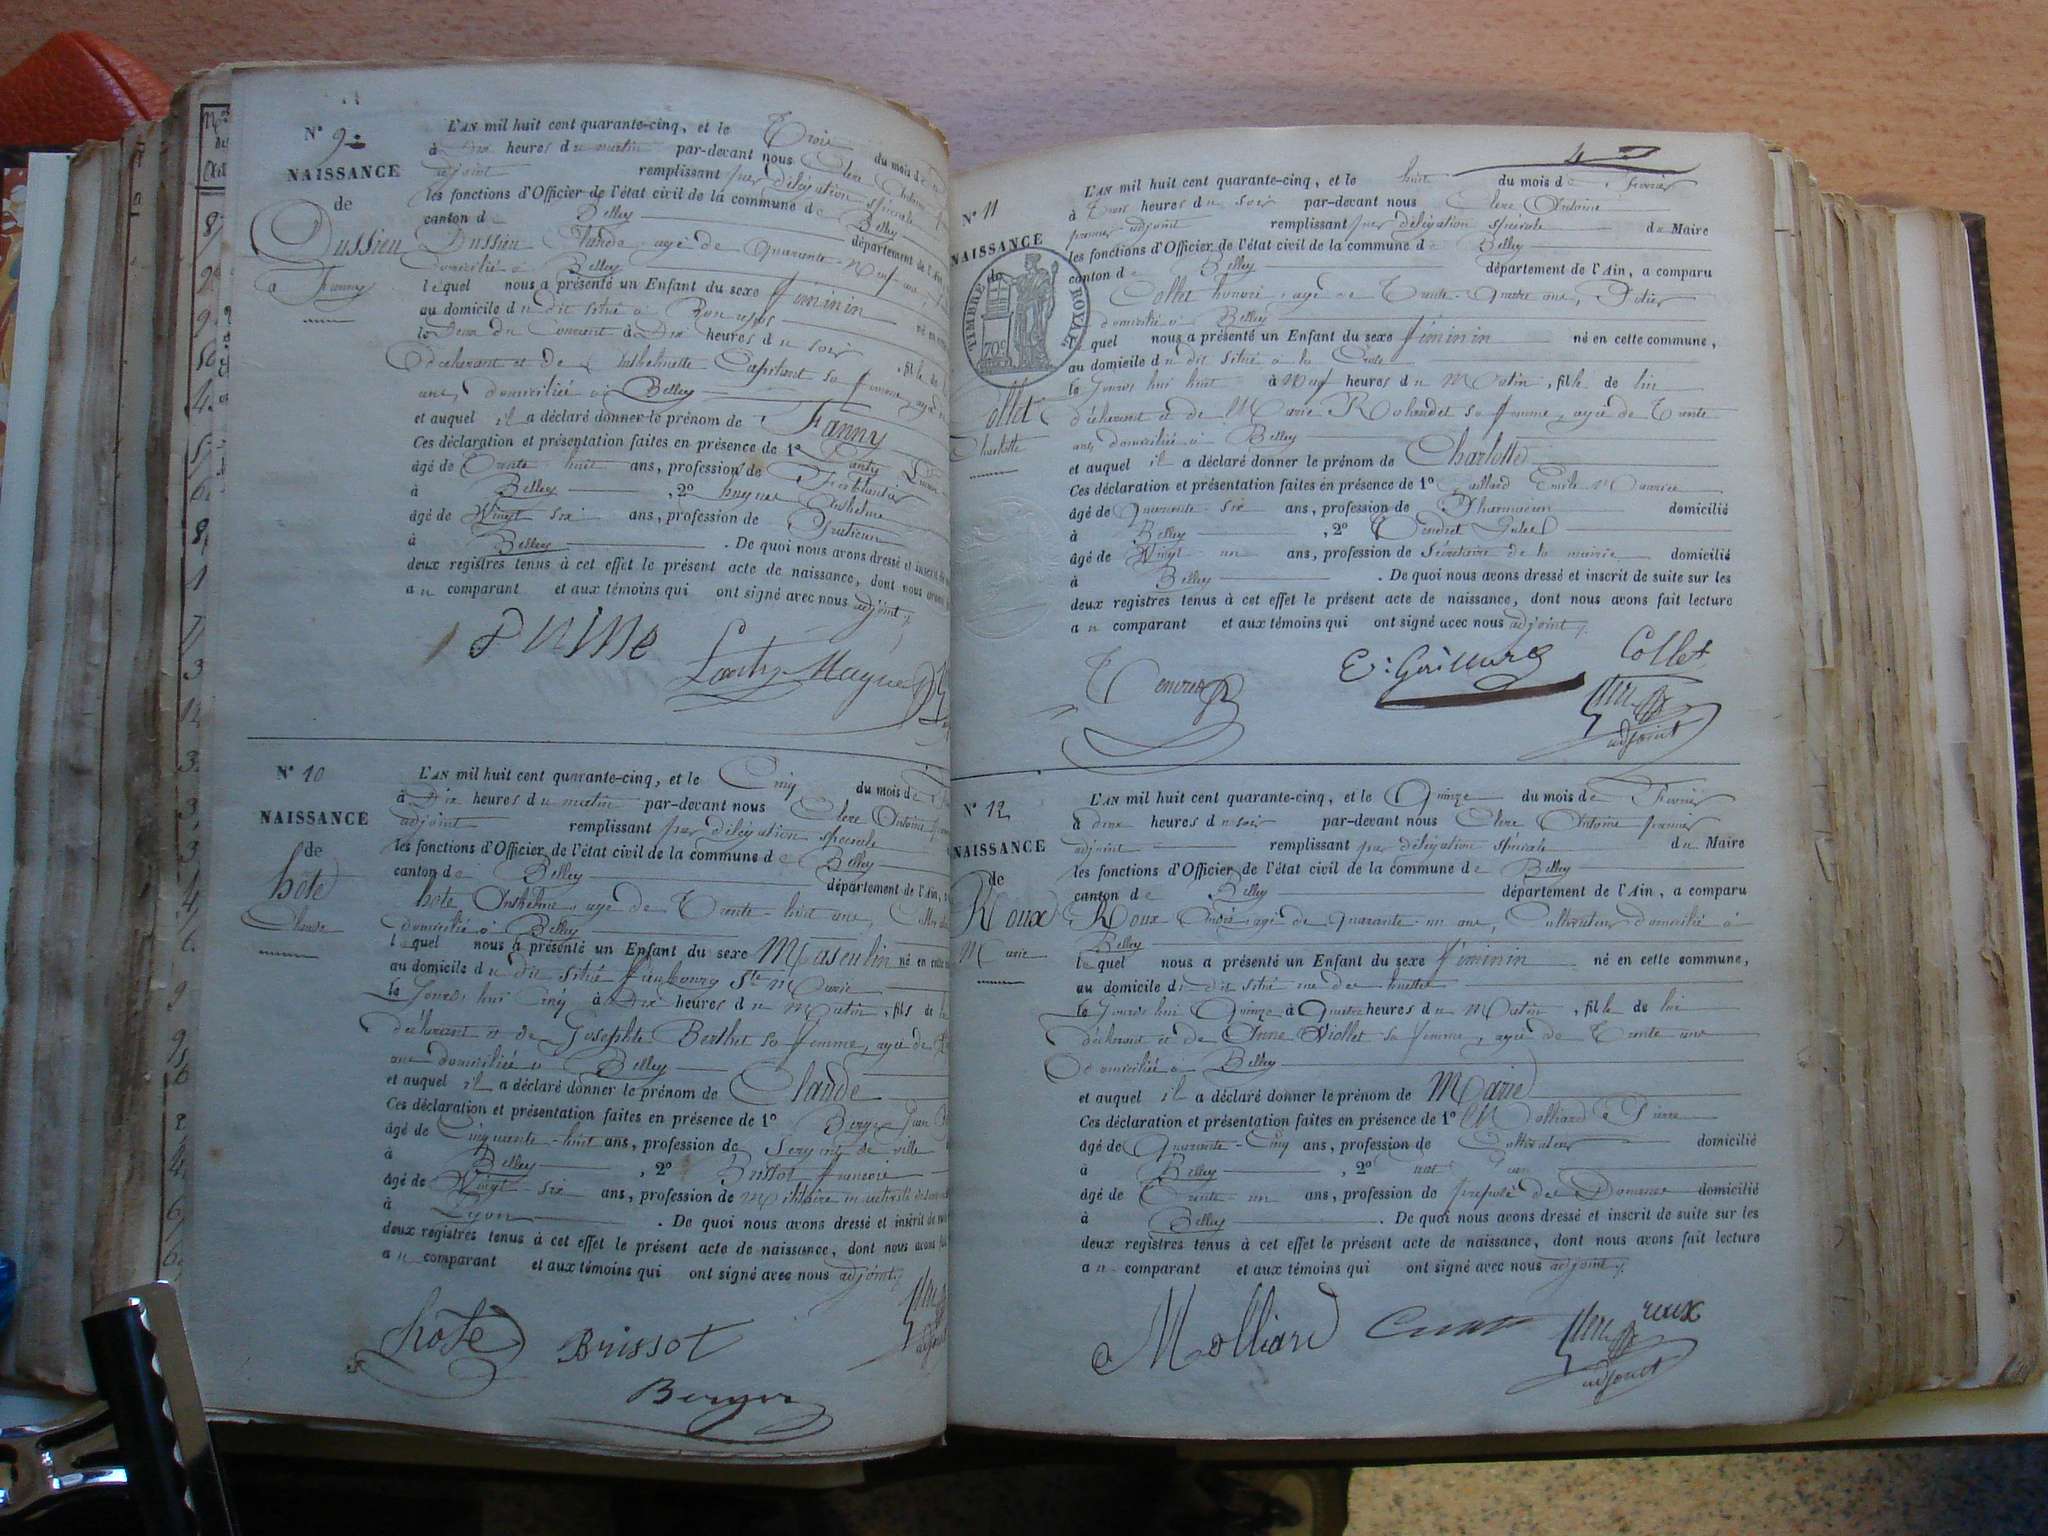 N° 9
NAISSANCE
de
Dussieu
Fanny
L'AN mil huit cent quarante-cinq, et le Trois du mois de
à Dix heures du matin par-devant nous Clerc Antoine
adjoint remplissant par délégation spéciale
les fonctions d'Officier de l'état civil de la commune de Belley
canton de Belley département de l'Ain
Dussieu agé de quarante-neuf ans
domicilié à Belley
lequel nous a présenté un Enfant du sexe féminin né en
au domicile du dit situé à
le Deux du Courant à Dix heures du soir, fille de
déclarant et de sa femme, agée
ans, domiciliée à Belley
et auquel il a déclaré donner le prénom de Fanny
Ces déclaration et présentation faites en présence de 1°
âgé de Trente-huit ans, profession de Ferblantier
à Belley, 2° Anthelme
âgé de Vingt six ans, profession de Praticien
à Belley. De quoi nous avons dressé et inscrit de
deux registres tenus à cet effet le présent acte de naissance, dont nous avons
au comparant et aux témoins qui ont signé avec nous adjoint
N° 10
NAISSANCE
de
hôte
Claude
L'AN mil huit cent quarante-cinq, et le Cinq du mois de
à Dix heures du matin par-devant nous Clerc Antoine
adjoint remplissant par délégation spéciale
les fonctions d'Officier de l'état civil de la commune de Belley
canton de Belley département de l'Ain,
hôte Anthelme, agé de Trente-huit ans,
domicilié à Belley
lequel nous a présenté un Enfant du sexe Masculin né en cette
au domicile du dit situé faubourg Ste Marie
le Jourd'hui Cinq à Dix heures du Matin, fils de
déclarant et de Josephte Berthet sa femme, agée de
ans domiciliée à Belley
et auquel il a déclaré donner le prénom de Claude
Ces déclaration et présentation faites en présence de 1° Berger Jean
âgé de Cinquante-huit ans, profession de Sergent de ville
à Belley, 2° Brissot françois
âgé de Vingt-six ans, profession de Militaire
à Lyon. De quoi nous avons dressé et inscrit de
deux registres tenus à cet effet le présent acte de naissance, dont nous avons
au comparant et aux témoins qui ont signé avec nous adjoint
hôte Brissot
Berger
N° 11
NAISSANCE
de
TIMBRE ROYAL
70c
Collet
Charlotte
L'AN mil huit cent quarante-cinq, et le huit du mois de Fevrier
à Trois heures du soir par-devant nous Clerc Antoine
premier adjoint remplissant par délégation spéciale du Maire
les fonctions d'Officier de l'état civil de la commune de Belley
canton de Belley département de l'Ain, a comparu
Collet honoré, agé de Trente-Quatre ans, Potier
domicilié à Belley
lequel nous a présenté un Enfant du sexe féminin né en cette commune,
au domicile du dit situé à la Crote
le Jourd'hui huit à Neuf heures du Matin, fille de lui
déclarant et de Marie Rolandet sa femme, agée de Trente
ans, domiciliée à Belley
et auquel il a déclaré donner le prénom de Charlotte
Ces déclaration et présentation faites en présence de 1° Gaillard Emile
âgé de Quarante-six ans, profession de Pharmacien domicilié
à Belley, 2° Tendret
âgé de Vingt un ans, profession de Sécrétaire de la mairie domicilié
à Belley. De quoi nous avons dressé et inscrit de suite sur les
deux registres tenus à cet effet le présent acte de naissance, dont nous avons fait lecture
au comparant et aux témoins qui ont signé avec nous adjoint
Tendret E. Gaillard Collet
adjoint
N° 12
NAISSANCE
de
Roux
Marie
L'AN mil huit cent quarante-cinq, et le Quinze du mois de Fevrier
à deux heures du soir par-devant nous Clerc Antoine premier
adjoint remplissant par délégation spéciale du Maire
les fonctions d'Officier de l'état civil de la commune de Belley
canton de Belley département de l'Ain, a comparu
Roux André agé de quarante-un ans, Cultivateur domicilié à
Belley
lequel nous a présenté un Enfant du sexe féminin né en cette commune,
au domicile du dit situé rue des huttes
le Jourd'hui Quinze à Quatre heures du Matin, fille de lui
déclarant et de Anne Viollet sa femme, agée de Trente ans
domiciliée à Belley
et auquel il a déclaré donner le prénom de Marie
Ces déclaration et présentation faites en présence de 1° Molliard Pierre
âgé de Quarante-Cinq ans, profession de Cultivateur domicilié
à Belley, 2° Jean
âgé de Trente-un ans, profession de préposé des Domaines domicilié
à Belley. De quoi nous avons dressé et inscrit de suite sur les
deux registres tenus à cet effet le présent acte de naissance, dont nous avons fait lecture
au comparant et aux témoins qui ont signé avec nous adjoint
Molliard roux
adjoint